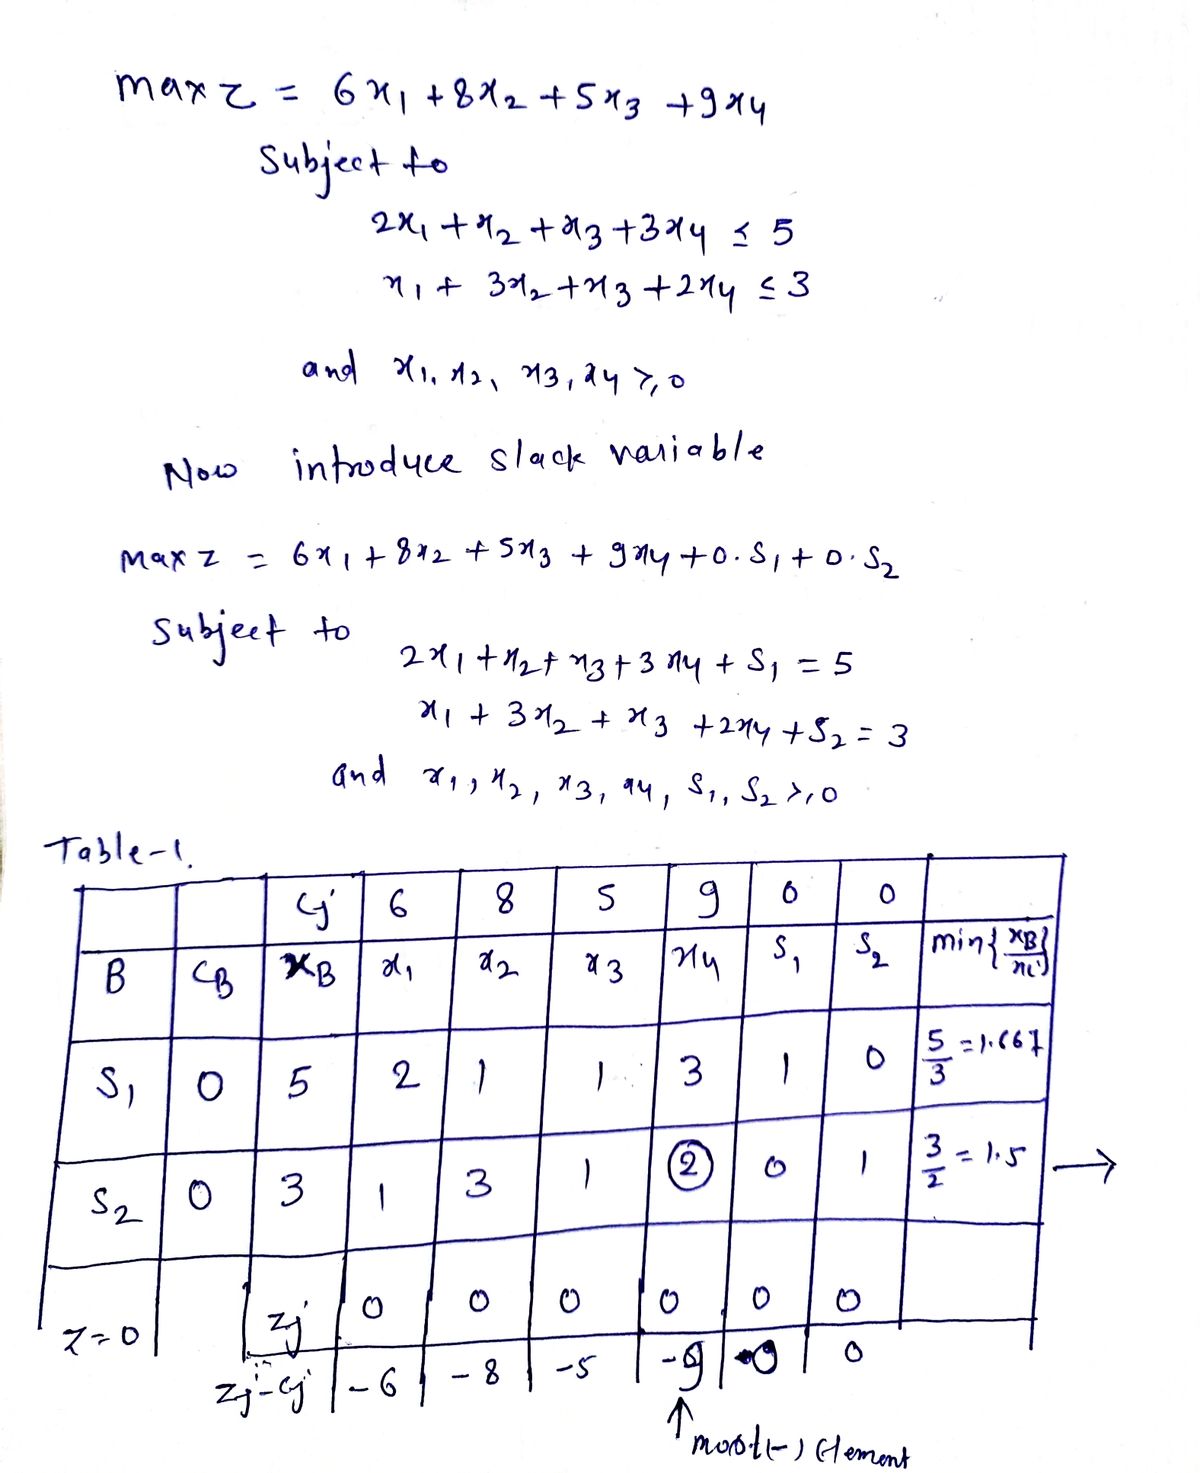 max z = 6x₁ + 8x₂ + 5x₃ + 9x₄
Subject to
2x₁ + x₂ + x₃ + 3x₄ ≤ 5
x₁ + 3x₂ + x₃ + 2x₄ ≤ 3
and x₁, x₂, x₃, x₄ ≥ 0
Now introduce slack variable
Max z = 6x₁ + 8x₂ + 5x₃ + 9x₄ + 0.S₁ + 0.S₂
Subject to
2x₁ + x₂ + x₃ + 3x₄ + S₁ = 5
x₁ + 3x₂ + x₃ + 2x₄ + S₂ = 3
and x₁, x₂, x₃, x₄, S₁, S₂ ≥ 0
Table-1.
Cj 6 8 5 9 0 0
B CB XB x₁ x₂ x₃ x₄ S₁ S₂ min{XB/xi}
S₁ 0 5 2 1 1 3 1 0 5/3 = 1.667
S₂ 0 3 1 3 1 2 0 1 3/2 = 1.5 →
Z=0 Zj 0 0 0 0 0 0
Zj-Cj -6 -8 -5 -9 0 0
↑ most(-) Element